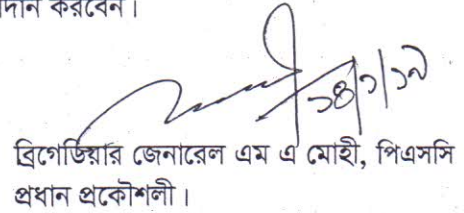 দান করবেন।
১৪/১/১৯
ব্রিগেডিয়ার জেনারেল এম এ মোহী, পিএসসি
প্রধান প্রকৌশলী।